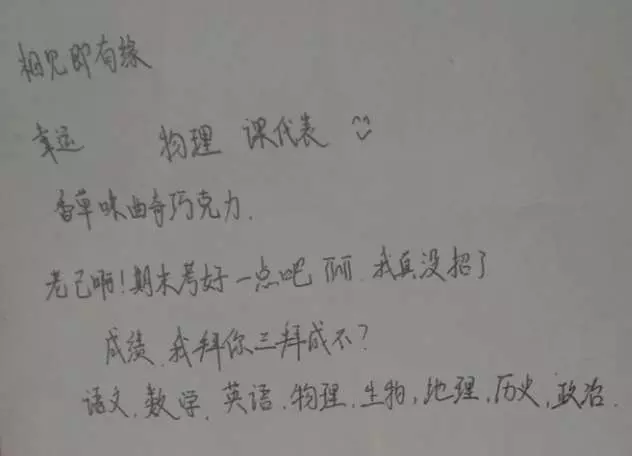 相见即有缘
幸运 物理 课代表
香草味曲奇巧克力.
老己啊!期末考好一点吧 我真没招了
成绩.我拜你三拜成不?
语文.数学.英语.物理.生物,地理,历史,政治.